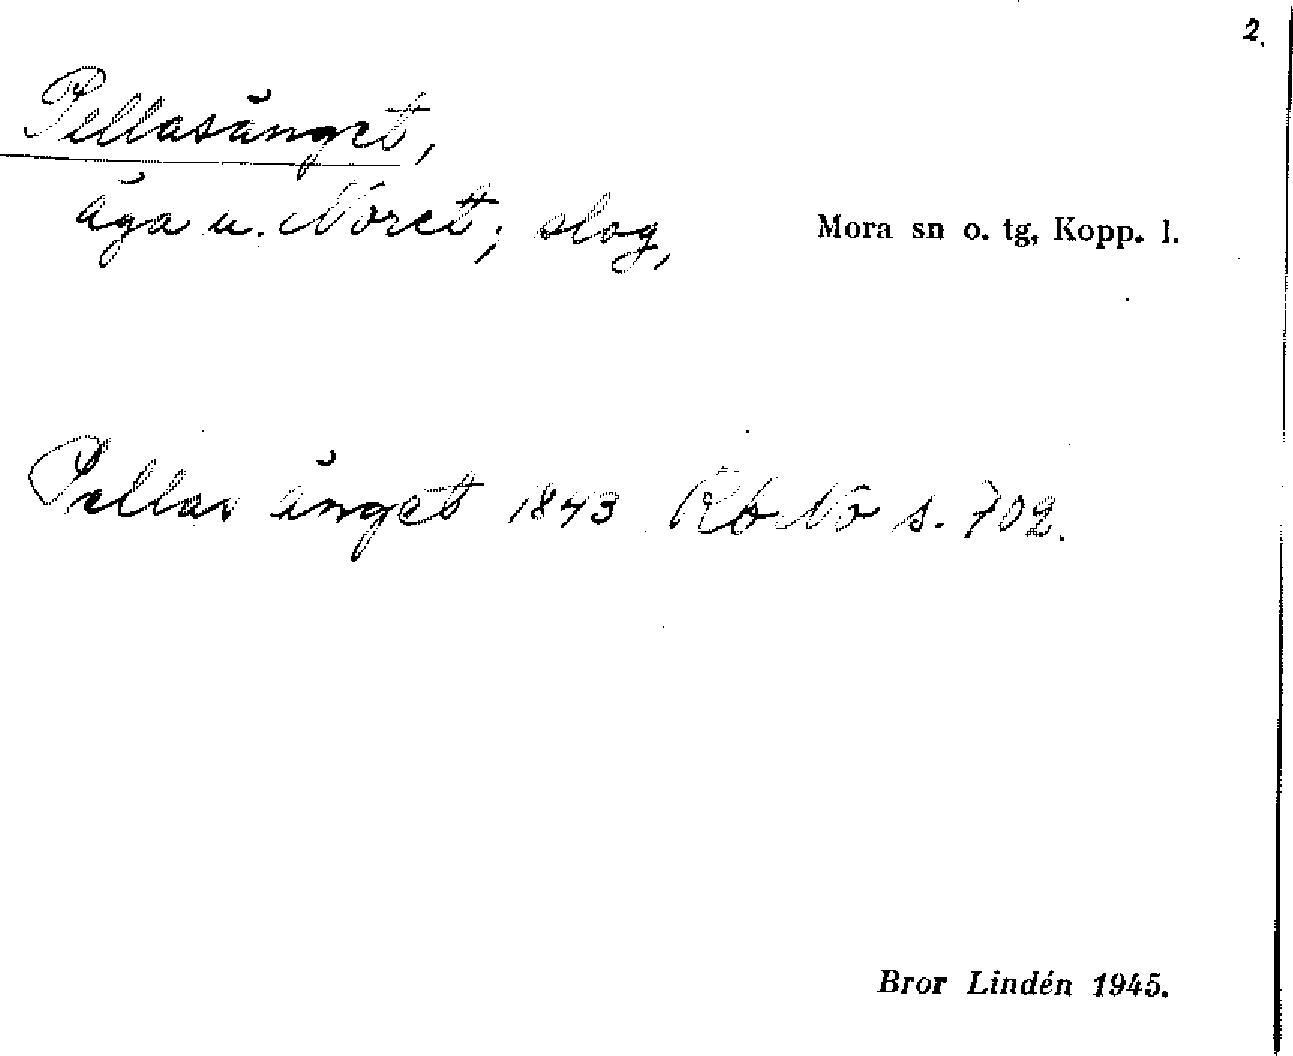 2.
Pellasänget,
äga u. Noret; slog,
Mora sn o. tg, Kopp. l.
Pellas änget 1843 Rb No s. 702.
Bror Lindén 1945.